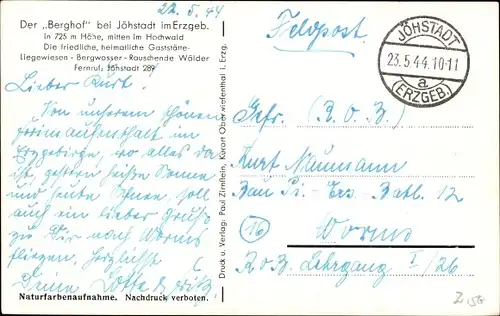 22.5.44
Der „Berghof" bei Jöhstadt im Erzgeb.
in 725 m Höhe, mitten im Hochwald
Die friedliche, heimatliche Gaststätte
Liegewiesen - Bergwasser - Rauschende Wälder
Fernruf: Jöhstadt 289
Lieber Kurt!
Von unserem schönen
Ferienaufenthalt im
Erzgebirge, wo alles da
ist, gestern heiße Sonne
und heute Schnee, soll
auch ein lieber Gruß
zu Dir nach Worms
fliegen. Herzlichst
Deine Lotte &
Naturfarbenaufnahme. Nachdruck verboten.
Druck u. Verlag: Paul Zirnstein, Kurort Oberwiesenthal i. Erzg.
Feldpost
JÖHSTADT
23.5.44.10-11
a
(ERZGEB.)
Gefr. (R.O.B.)
Kurt Naumann
Bau Pi.-Ers. Batl. 12
(16) Worms
R.O.B. Lehrgang I/26